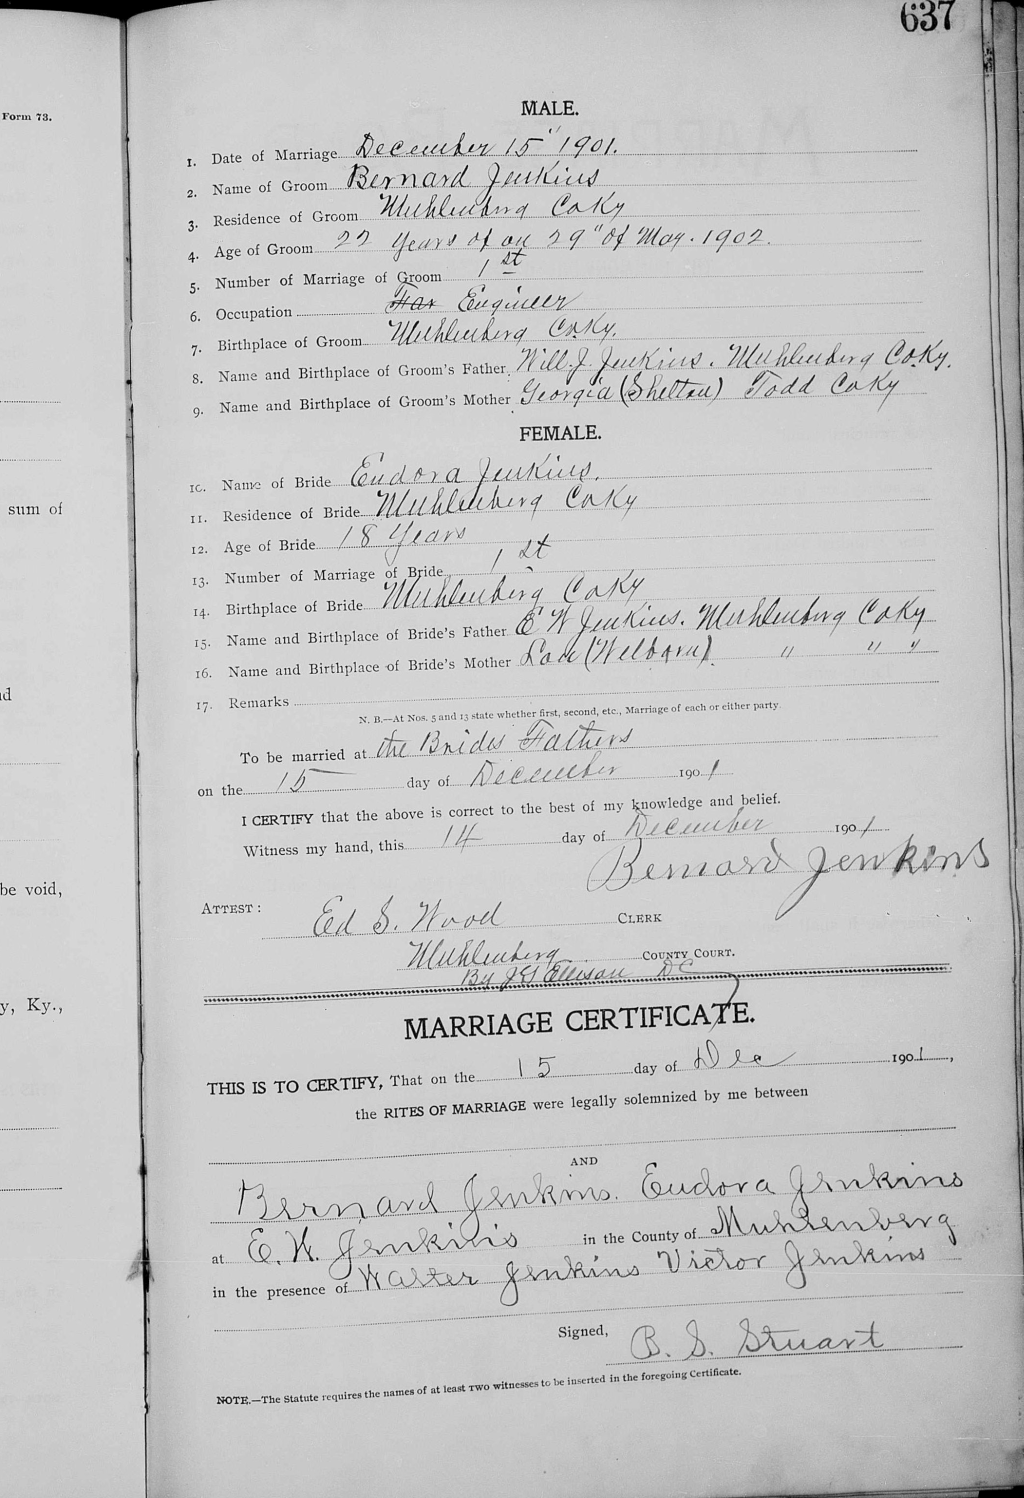 637
Form 73.
sum of
be void,
y, Ky.,
MALE.
1. Date of Marriage December 15" 1901.
2. Name of Groom Bernard Jenkins
3. Residence of Groom Muhlenberg Co Ky
4. Age of Groom 22 years of on 29" of May. 1902.
5. Number of Marriage of Groom 1st
6. Occupation Far Engineer
7. Birthplace of Groom Muhlenberg Co. Ky.
8. Name and Birthplace of Groom's Father Will. J. Jenkins. Muhlenberg Co. Ky.
9. Name and Birthplace of Groom's Mother Georgia (Shelton) Todd Co Ky
FEMALE.
10. Name of Bride Eudora Jenkins.
11. Residence of Bride Muhlenberg Co Ky
12. Age of Bride 18 Years
13. Number of Marriage of Bride 1 st
14. Birthplace of Bride Muhlenberg Co Ky
15. Name and Birthplace of Bride's Father E W Jenkins. Muhlenberg Co Ky
16. Name and Birthplace of Bride's Mother Lou (Welborn) " " "
17. Remarks
N. B.—At Nos. 5 and 13 state whether first, second, etc., Marriage of each or either party.
To be married at the Brides Fathers
on the 15 day of December 1901
I CERTIFY that the above is correct to the best of my knowledge and belief.
Witness my hand, this 14 day of December 1901
Bernard Jenkins
ATTEST: Ed S. Wood CLERK
Muhlenberg COUNTY COURT.
By Ellison DC
MARRIAGE CERTIFICATE.
THIS IS TO CERTIFY, That on the 15 day of Dec 1901,
the RITES OF MARRIAGE were legally solemnized by me between
AND
Bernard Jenkins. Eudora Jenkins
at E. W. Jenkins in the County of Muhlenberg
in the presence of Walter Jenkins Victor Jenkins
Signed, B. S. Stuart
NOTE.—The Statute requires the names of at least TWO witnesses to be inserted in the foregoing Certificate.